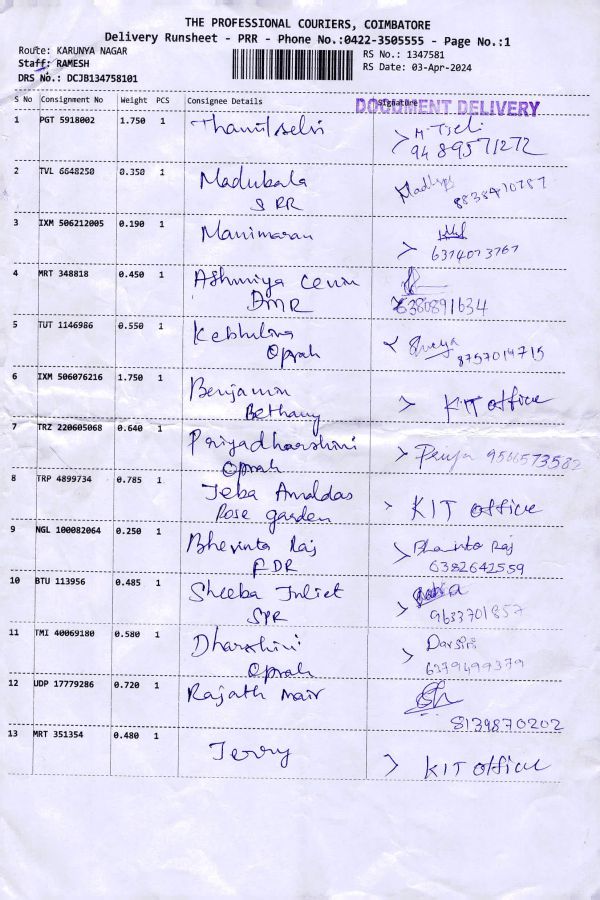 THE PROFESSIONAL COURIERS, COIMBATORE
Delivery Runsheet - PRR - Phone No.:0422-3505555 - Page No.:1
Route: KARUNYA NAGAR
RS No.: 1347581
Staff: RAMESH
RS Date: 03-Apr-2024
DRS No.: DCJB134758101
S No Consignment No Weight PCS Consignee Details Signature
DOCUMENT DELIVERY
1 PGT 5918002 1.750 1 Thamilselvi
9489571272
2 TVL 6648250 0.350 1 Madubala
SRR
8838410787
3 IXM 506212005 0.190 1 Manimaran
6374073767
4 MRT 348818 0.450 1 Ashmiya
DMR
6380891634
5 TUT 1146986 0.550 1
Oprah
8757014715
6 IXM 506076216 1.750 1 Benjamin
Bethany
KIT office
7 TRZ 220605068 0.640 1 Priyadharshini
Oprah
Priya 9566573582
8 TRP 4899734 0.785 1 Jeba
Rose garden
KIT office
9 NGL 100082064 0.250 1 Bhevinta Raj
Raj
6382642559
10 BTU 113956 0.485 1 Sheeba Juliet
SPR
9633701857
11 TMI 40069180 0.580 1 Dharshini
Oprah
Darsini
6379699379
12 UDP 17779286 0.720 1 Rajath Nair
8139870202
13 MRT 351354 0.480 1 Jerry
KIT office